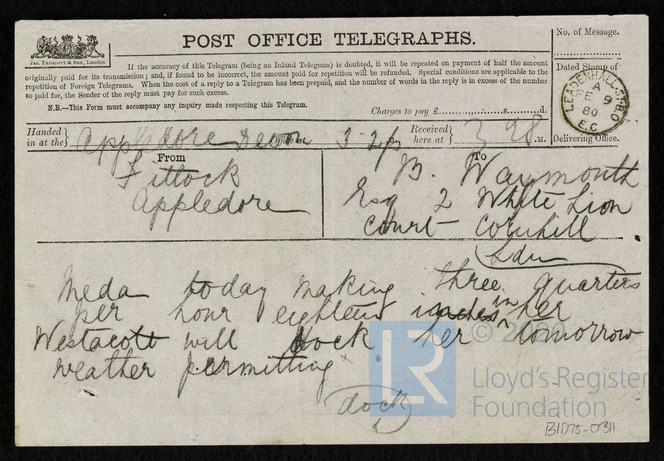 POST OFFICE TELEGRAPHS.
No. of Message.
JAS. TRUSCOTT & SON, London
If the accuracy of this Telegram (being an Inland Telegram) is doubted, it will be repeated on payment of half the amount
originally paid for its transmission; and, if found to be incorrect, the amount paid for repetition will be refunded. Special conditions are applicable to the
repetition of Foreign Telegrams. When the cost of a reply to a Telegram has been prepaid, and the number of words in the reply is in excess of the number
so paid for, the Sender of the reply must pay for such excess.
N.B.—This Form must accompany any inquiry made respecting this Telegram.
Charges to pay £ s. d.
Dated Stamp of
LEADENHALL ST. B.O
A
FE 9
80
E.C
Delivering Office.
Handed in at the Appledore Devon 3.2p Received here at 3 28 M.
From
Fittock
Appledore
To
B. Waymouth
Esq 2 White Lion
Court Cornhill
Ldn
Meda today making three quarters
per hour eighteen inches in her
Westacott will dock her tomorrow
weather permitting
dock
© 2020
LR
Lloyd's Register
Foundation
B1D75-0311